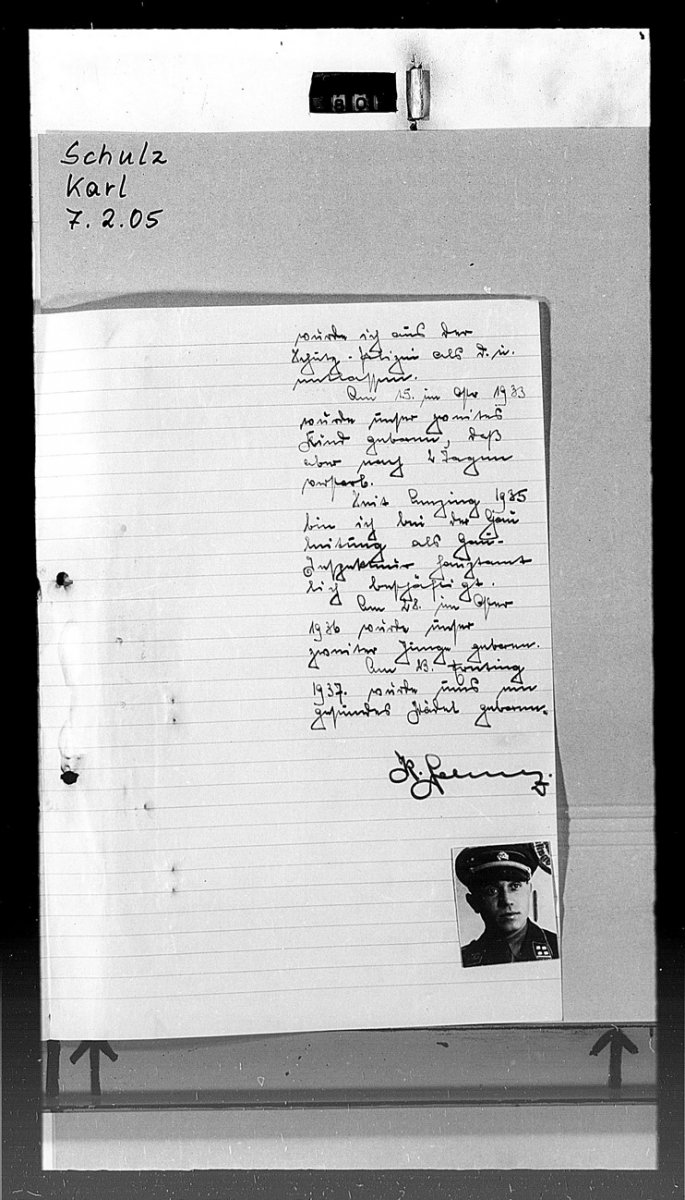 80
Schulz
Karl
7.2.05
wurde ich aus der
Schutz-polizei als d.u.
entlassen.
Am 15. im 1933
wurde unser zweites
Kind geboren, daß
aber nach 2 Tagen
verstarb.
Seit Lenzing 1935
bin ich bei der Gau
leitung als Gau-
Inspekteur hauptamt
lich beschäftigt.
Am 28. im Oster
1936 wurde unser
zweiter Junge geboren.
Am 13.
1937. wurde uns ein
gesundes Mädel geboren.
K. Schulz.